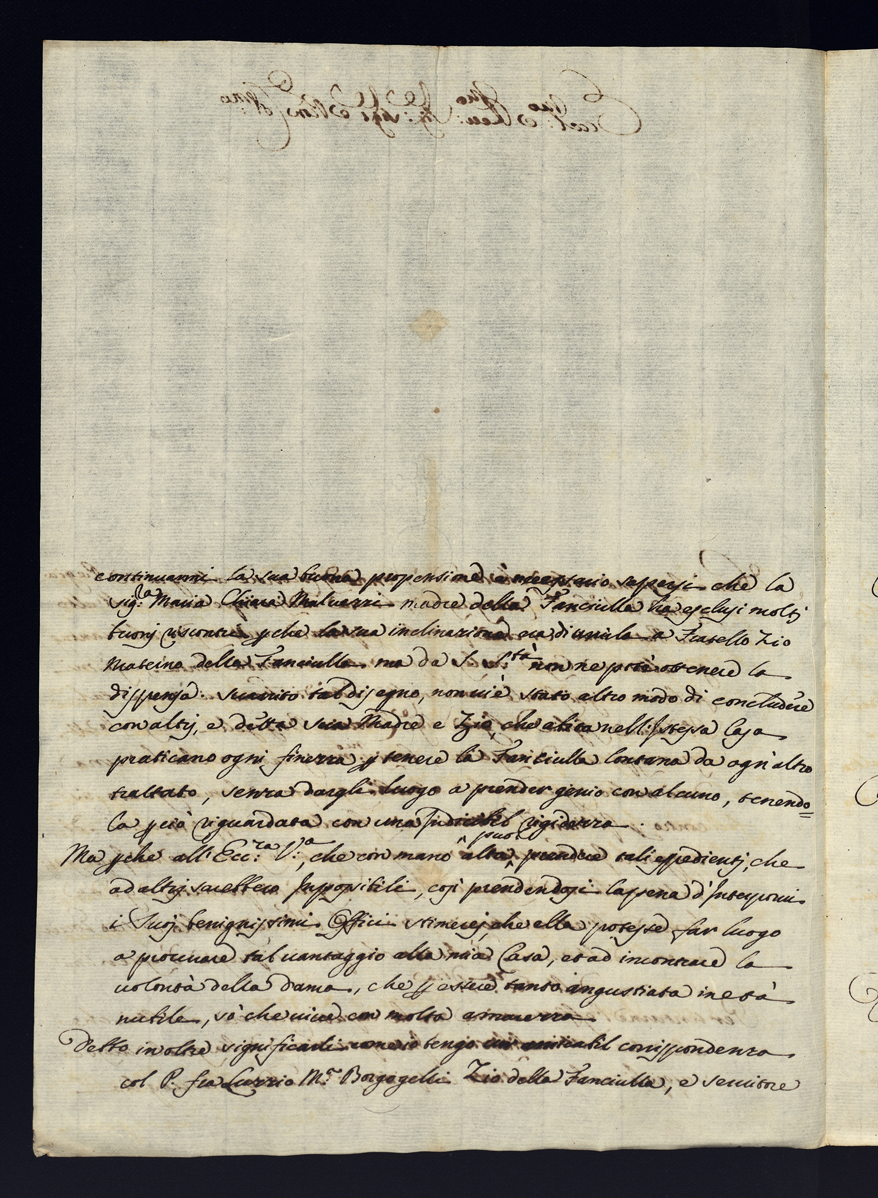 continuarmi la sua buona propensione è necessario sapersi che la
Sig:ra Maria Chiara Malvezzi madre della Fanciulla ha esclusi molti
buoni riscontri pche la sua inclinazione era di unirla a Fratello Zio
Materno della Fanciulla, ma da S. S.tà non ne potè ottenere la
dispensa. Svanito tal disegno, non vi è stato altro modo di concludere
con altri, e detta sua Madre e Zio, che abita nell'Istessa Casa
praticano ogni finezza p tenere la Fanciulla lontana da ogn'altro
trattato, senza dargli luogo a prender genio con alcuno, tenendo=
la pciò riguardata con una rigidezza.
Ma pche all'Ecc:ra V:a, che con mano alta puole prendere tali espedienti, che
ad altri sarebbero Impossibili, così prendendosi la pena d'Interporvi
i Suoi benignissimi Offici stimerei, che ella potesse far luogo
a procurare tal vantaggio alla mia Casa, et ad incontrare la
volontà della dama, che p essere tanto angustiata in età
nubile, sò che vive con molta amarezza
Detto in oltre significarli come io tengo un amicabil corrispondenza
col P. fra M.r Borgogelli Zio della Fanciulla, e servitore